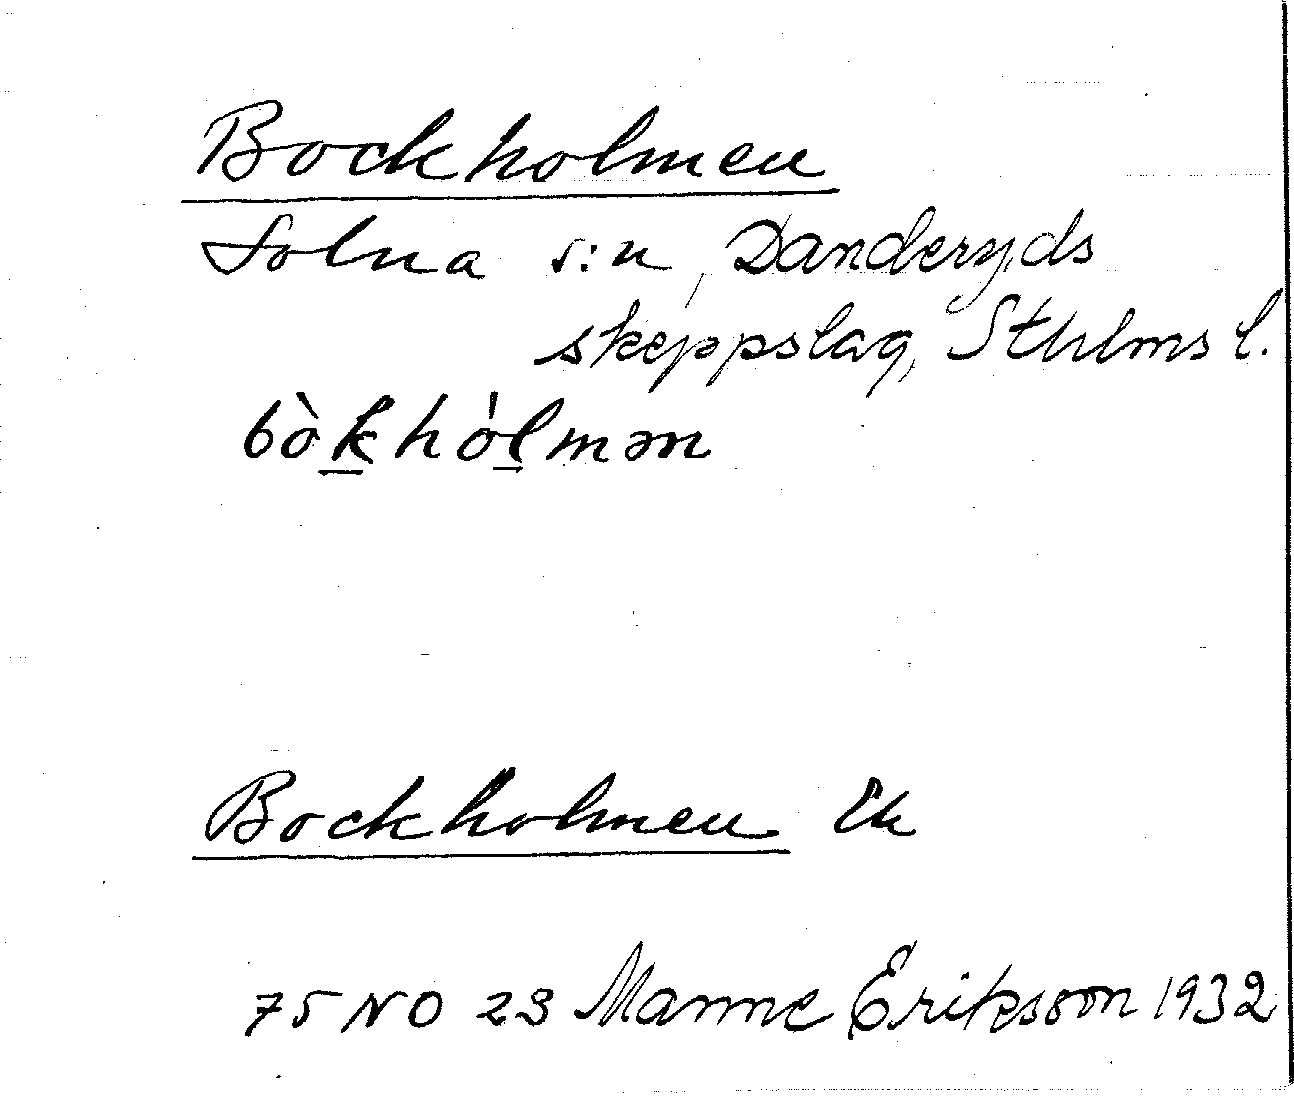 Bockholmen
Solna s:n, Danderyds
skeppslag, Sthlms l.
bòkhólmən
Bockholmen Ek
75 NO 23 Manne Eriksson 1932